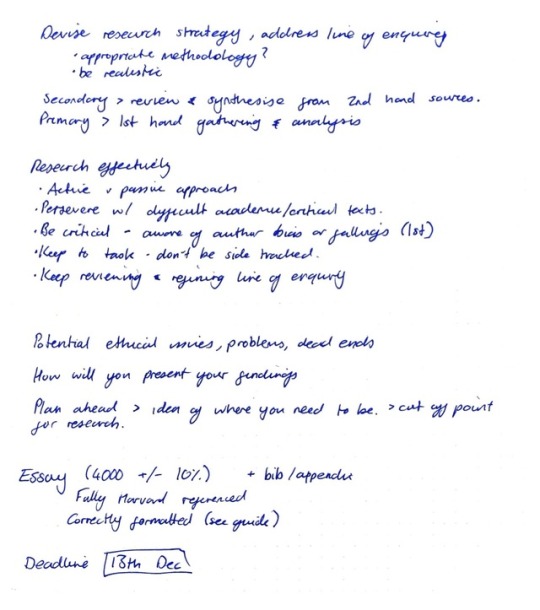 Devise research strategy, address line of enquiry
· appropriate methodology?
· be realistic
Secondary > review & synthesise from 2nd hand sources.
Primary > 1st hand gathering & analysis
Research effectively
· Active v passive approach
· Persevere w/ difficult academic/critical texts.
· Be critical - aware of author bias or failings (1st)
· Keep to task - don't be side tracked.
· Keep reviewing & refining line of enquiry
Potential ethical issues, problems, dead ends
How will you present your findings
Plan ahead > idea of where you need to be. > cut off point
for research.
Essay (4000 +/- 10%) + bib/appendix
Fully Harvard referenced
Correctly formatted (see guide)
Deadline 13th Dec